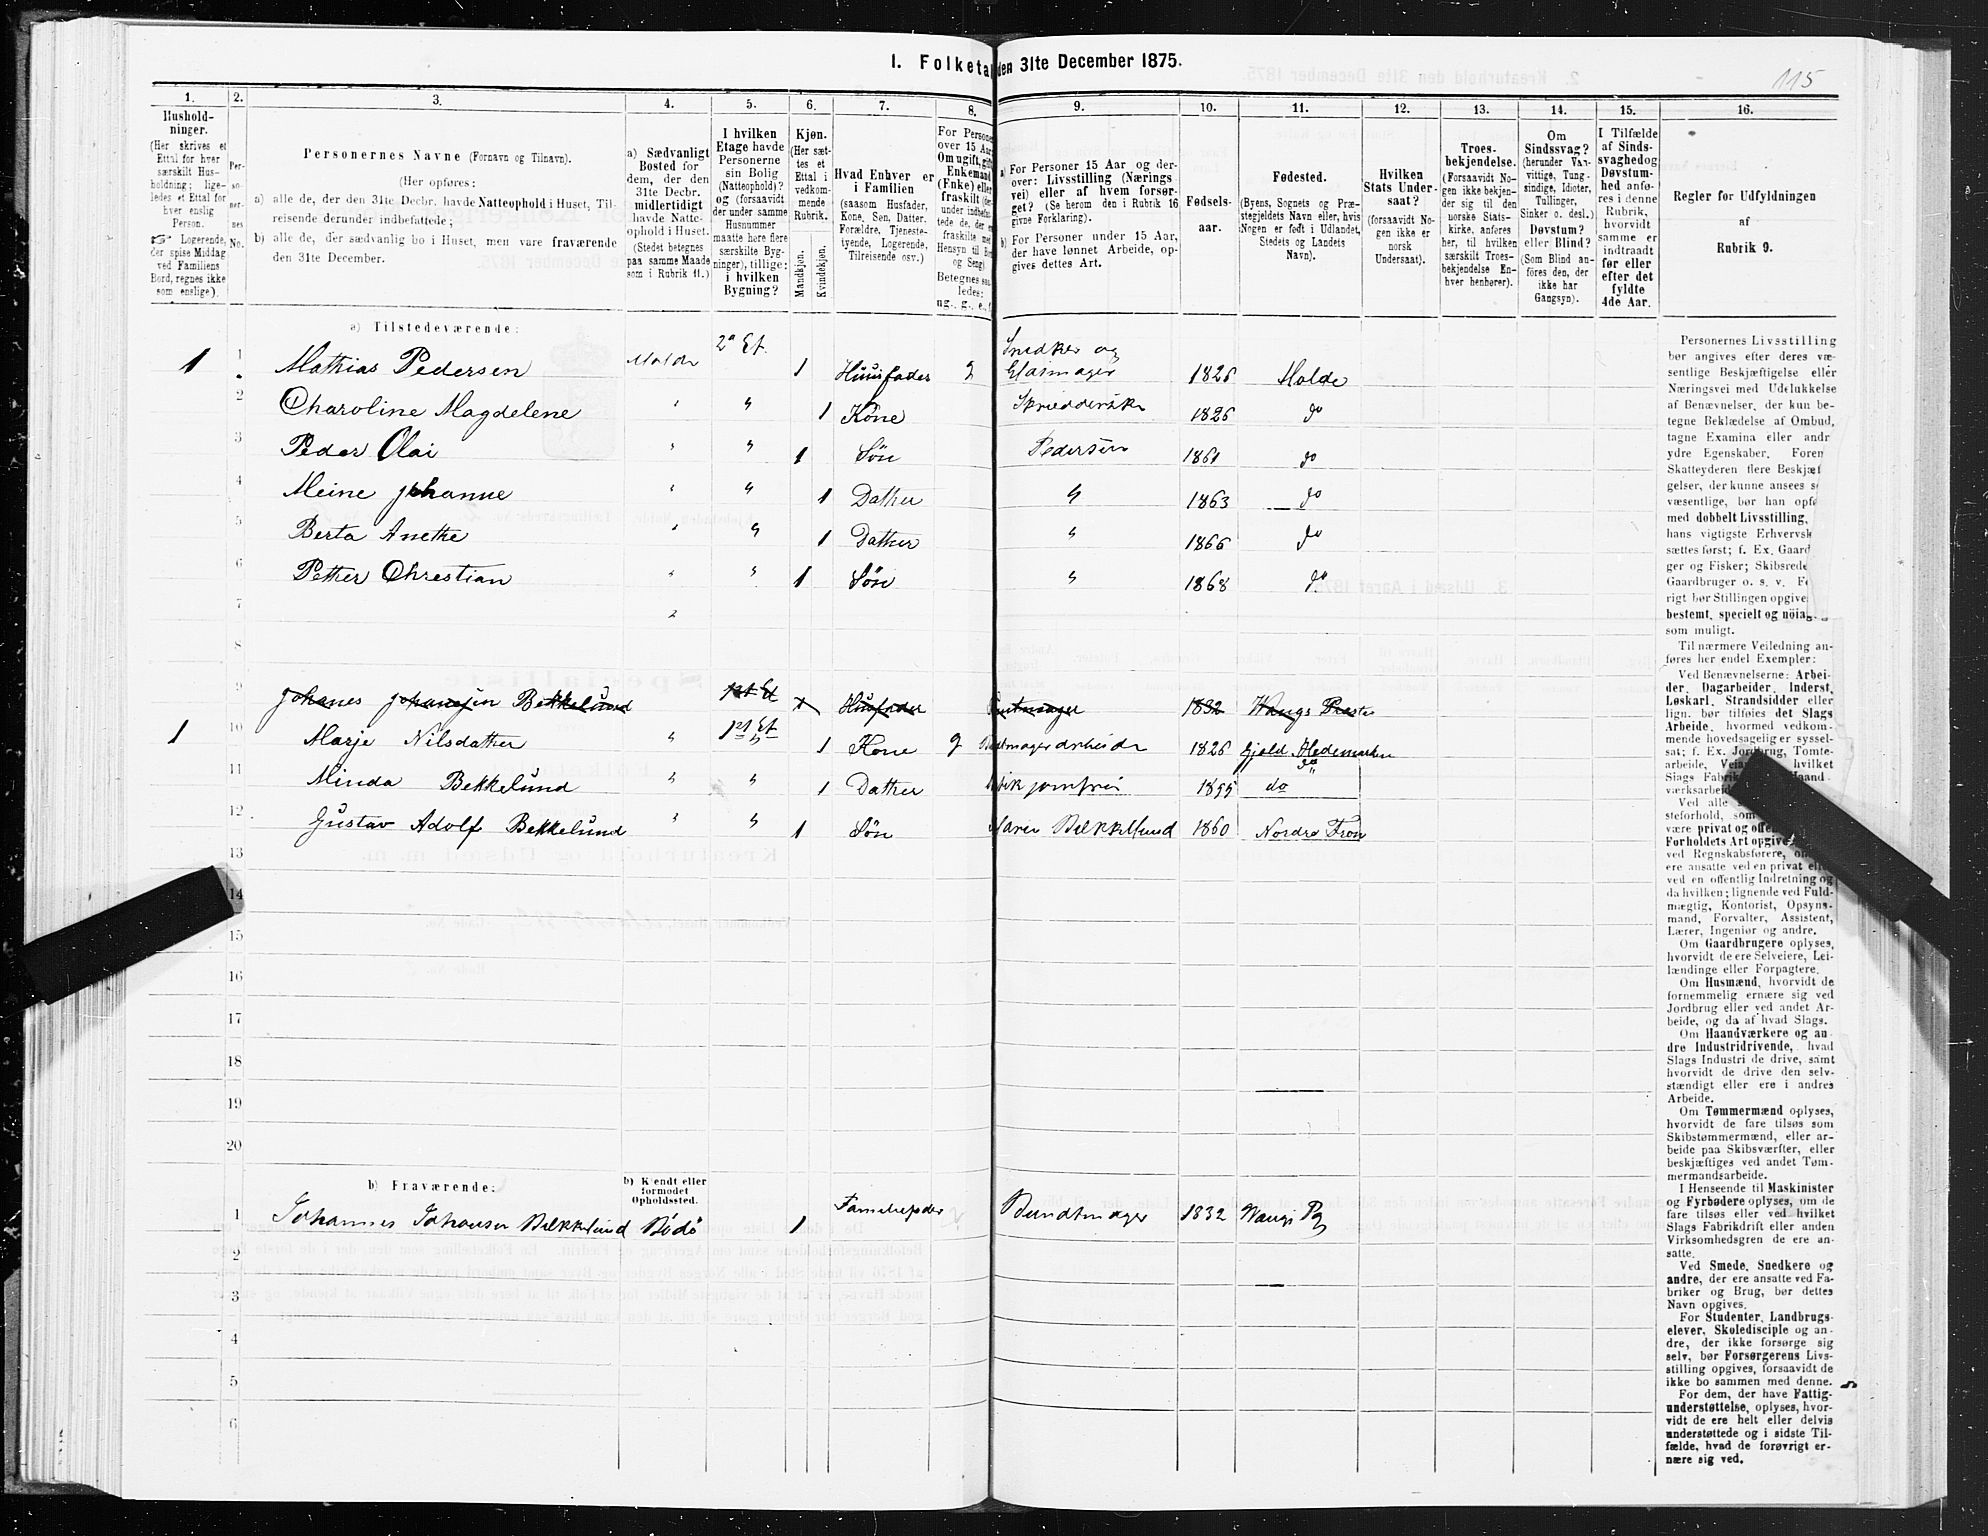 1. Folketal den 31te December 1875.
115
1. 2. 3. 4. 5. 6. 7. 8. 9. 10. 11. 12. 13. 14. 15. 16.
Hushold-
ninger.
(Her skrives et
Ettal for hver
særskilt Hus-
holdning; lige-
ledes et Ettal for
hver enslig
Person.
☞ Logerende,
der spise Middag
ved Familiens
Bord, regnes ikke
som enslige).
Per-
so-
ner-
nes
No.
Personernes Navne (Fornavn og Tilnavn).
(Her opføres:
a) alle de, der den 31te Decbr. havde Natteophold i Huset, Til-
reisende derunder indbefattede;
b) alle de, der sædvanlig bo i Huset, men vare fraværende
den 31te December.
a) Sædvanligt
Bosted for
dem, der den
31te Decbr.
midlertidigt
havde Natte-
ophold i Huset.
(Stedet betegnes
paa samme Maade
som i Rubrik 11.)
I hvilken
Etage havde
Personerne
sin Bolig
(Natteophold)?
og (forsaavidt
der under samme
Husnummer
maatte høre flere
særskilte Byg-
ninger), tillige:
i hvilken
Bygning?
Kjøn.
(Her sæt-
tes et
Ettal i
vedkom-
mende
Rubrik.
Mandkjøn.
Kvindekjøn.
Hvad Enhver er
i Familien
(saasom Husfader,
Kone, Søn, Datter,
Forældre, Tjeneste-
tyende, Logerende,
Tilreisende osv.)
For Personer
over 15 Aar:
Om ugift, gift,
Enkemand
(Enke) eller
fraskilt
Betegnes saa-
ledes:
ug., g., e.,
a) For Personer 15 Aar og der-
over: Livsstilling (Nærings
vei) eller af hvem forsør-
get? (Se herom den i Rubrik 16
givne Forklaring).
b) For Personer under 15 Aar,
der have lønnet Arbeide, op-
gives dettes Art.
Fødsels-
aar.
Fødested.
(Byens, Sognets og Præ-
stegjeldets Navn eller, hvis
Nogen er født i Udlandet,
Stedets og Landets
Navn).
Hvilken
Stats Under-
saat?
(forsaavidt No-
gen ikke er
norsk
Undersaat).
Troes-
bekjendelse.
(Forsaavidt No-
gen ikke bekjen-
der sig til den
norske Stats-
kirke, anføres
her, til hvilken
særskilt Troes-
bekjendelse En-
hver henhører).
Om
Sindssvag?
(herunder Van-
vittige, Tung-
sindige, Idioter,
Tullinger,
Sinker o. desl.)
Døvstum?
eller Blind?
(Som Blind an-
føres den, der
ikke har
Gangsyn).
I Tilfælde
af Sinds-
svaghed og
Døvstum-
hed anfø-
res i denne
Rubrik,
hvorvidt
samme er
indtraadt
før eller
efter det
fyldte
4de Aar.
Regler for Udfyldningen
af
Rubrik 9.
a) Tilstedeværende:
1 1 Mathias Pedersen Molde 2n Et. 1 Huusfader g Snedker og Glasmager 1826 Molde
2 Charoline Magdelene " " 1 Kone 1826 do
3 Peder Olai " " 1 Søn Pedersen 1861 do
4 Meine Johanne " " 1 Datter " 1863 do
5 Berta Anethe " " 1 Datter " 1866 do
6 Petter Chrestian " " 1 Søn " 1868 do
7
8
9 Johanes Johansen Bekkelund 1st Et Husfader Buntmager 1832 Vangs Præste
1 10 Marje Nilsdatter " 1st Et 1 Kone g Buntmagerarbeide 1826 Hedemarken
11 Minda Bekkelund " " 1 Datter 1855 do
12 Gustav Adolf Bekkelund " " 1 Søn Maren Bekkelund 1860 Nordre Fron
13
14
15
16
17
18
19
20
b) Fraværende:
b) Kjendt eller
formodet
Opholdssted.
1 Johannes Johansen Bekkelund Bodö 1 Bundtmager 1832 Vangs Pg
2
3
4
5
6
Personernes Livsstilling
bør angives efter deres væ-
sentlige Beskjæftigelse eller
Næringsvei med Udelukkelse
af Benævnelser, der kun be-
tegne Beklædelse af Ombud,
tagne Examina eller andr
ydre Egenskaber. Foren
Skatteyderen flere Beskjæf
gelser, der kunne ansees s
væsentlige, bør han opfø
med dobbelt Livsstilling,
hans vigtigste Erhvervsk
sættes først; f. Ex. Gaard
ger og Fisker; Skibsrede
Gaardbruger o. s. v. F
rigt bør Stillingen opgive
bestemt, specielt og nøiag-
som muligt.
Til nærmere Veiledning an-
føres her endel Exempler:
Ved Benævnelserne: Arbei-
der, Dagarbeider, Inderst,
Løskarl, Strandsidder eller
lign. bør tilføies det Slags
Arbeide, hvormed vedkom-
mende hovedsagelig er syssel-
sat; f. Ex. Jordbrug, Tomte-
arbeide, hvilket
Slags
Ved alle
være privat og
Forholdets Art opgives
ved Regnskabsførere,
ere ansatte ved en privat eller
ved en offentlig Indretning og
da hvilken; lignende ved Fuld-
mægtig, Kontorist, Opsyns-
mand, Forvalter, Assistent,
Lærer, Ingeniør og andre.
Om Gaardbrugere oplyses,
hvorvidt de ere Selveiere, Lei-
lændinge eller Forpagtere.
Om Husmænd, hvorvidt de
fornemmelig ernære sig ved
Jordbrug eller ved andet Ar-
beide, og da af hvad Slags.
Om Haandværkere og an-
dre Industridrivende, hvad
Slags Industri de drive, samt
hvorvidt de drive den selv-
stændigt eller ere i andres
Arbeide.
Om Tømmermænd oplyses,
hvorvidt de fare tilsøs som
Skibstømmermænd, eller ar-
beide paa Skibsværfter, eller
beskjæftiges ved andet Tøm-
mermandsarbeide.
I Henseende til Maskinister
og Fyrbødere oplyses, om de
fare tilsøs eller ved hvilket
Slags Fabrikdrift eller anden
Virksomhedsgren de ere an-
satte.
Ved Smede, Snedkere og
andre, der ere ansatte ved Fa-
briker og Brug, bør dettes
Navn opgives.
For Studenter, Landbrugs-
elever, Skoledisciple og an-
dre, der ikke forsørge sig
selv, bør Forsørgerens Livs-
stilling opgives, forsaavidt de
ikke bo sammen med denne.
For dem, der have Fattig-
understøttelse, oplyses, hvor-
vidt de ere helt eller delvis
understøttede og i sidste Til-
fælde, hvad de forøvrigt er-
nære sig ved.